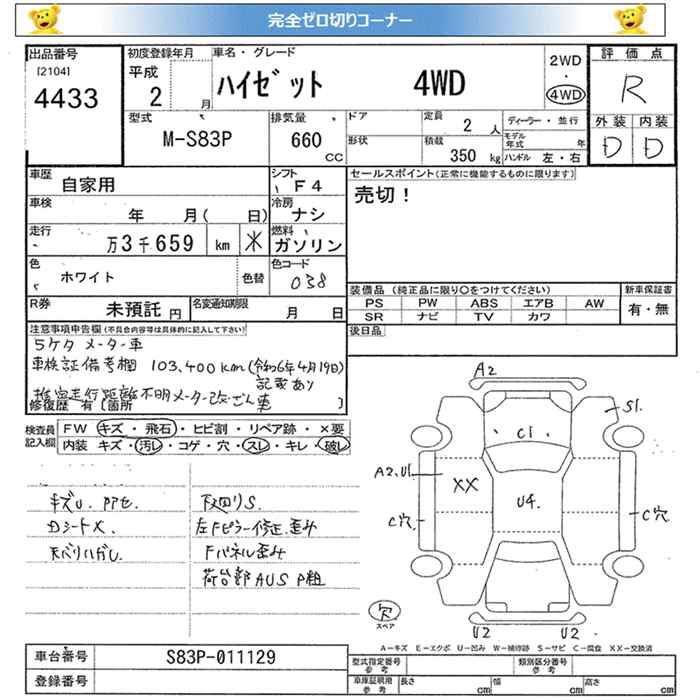 完全ゼロ切りコーナー
出品番号
[2104]
4433
初度登録年月
平成
2 月
車名・グレード
ハイゼット 4WD
2WD
・
4WD
評価点
R
外装 内装
D D
型式
M-S83P
排気量
660
CC
ドア
形状
定員
2 人
積載
350 kg
ディーラー・並行
モデル年式 年
ハンドル 左・右
車歴
自家用
シフト
F4
車検
年 月( 日)
冷房
ナシ
走行
万3千659 km ※
燃料
ガソリン
色
ホワイト
色替
色コード
038
R券
未預託 円
名変通知期限
月 日
セールスポイント(正常に機能するものに限ります)
売切!
装備品 (純正品に限り○をつけてください)
PS PW ABS エアB AW
SR ナビ TV カワ
新車保証書
有・無
後日品
注意事項申告欄(不具合内容等は具体的に記入して下さい)
5ケタメーター車
車検証備考欄 103,400km(令和6年4月19日)
記載あり
推定走行距離不明メーター改ざん車
修復歴 有〔箇所 〕
検査員
記入欄
FW キズ・飛石・ヒビ割・リペア跡・×要
内装 キズ・汚レ・コゲ・穴・スレ・キレ・破レ
キズU.PPセ.
Dシートメ.
モバリハガレ
下廻りS.
左Fピラー修正.歪み
Fパネル歪み
荷台部AUS P粗
A2
S1.
C1
A2.U1.
XX
U4.
C穴.
C穴.
欠
スペア
U2
U2
A-キズ E-エクボ U-凹み W-補修跡 S-サビ C-腐食 XX-交換済
車台番号
S83P-011129
登録番号
型式指定番号
参考
類別区分番号
参考
車庫証明用
参考
長さ cm
幅 cm
高さ cm